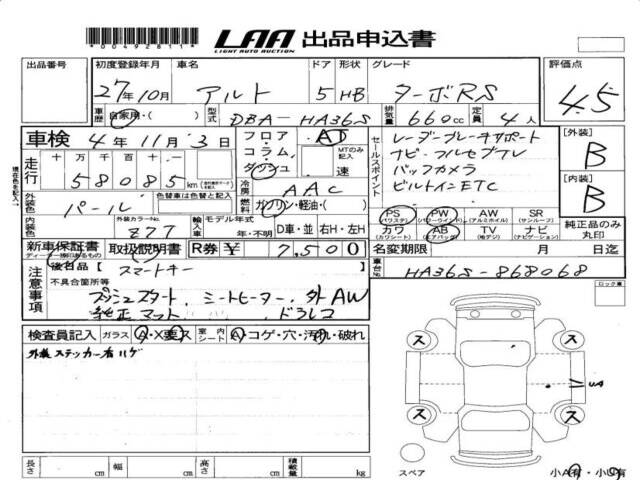 *00492811*
LAA 出品申込書
LIGHT AUTO AUCTION
出品番号 初度登録年月 車名 ドア 形状 グレード 評価点
27年10月 アルト 5 HB ターボRS 4.5
車歴 自家用・( ) 型式 DBA-HA36S 排気量 660cc 定員 4人
車検 4年11月3日 フロア・コラム・ダッシュ AT MTのみ記入 速
セールスポイント レーダーブレーキサポート
ナビ・フルセグTV
バックカメラ
ビルトインETC
[外装] B
[内装] B
走行 十万千百十一
58085km
現在色を記入→
冷房 AAC
外装色 パール 色替車は色替え前色 燃料 ガソリン・軽油・( )
内装色 外装カラーNo. Z7T 輸入車 モデル年式 年・不明 D車・並 右H・左H
PS (パワステ) PW (パワーウィンドウ) AW (アルミホイル) SR (サンルーフ)
カワ (カワシート) AB (エアバッグ) TV (地デジ) ナビ (ナビゲーション)
純正品のみ丸印
新車保証書 取扱説明書 R券 ¥ 7,500 名変期限 月 日迄
注意事項 後日品 スマートキー
車台No. HA36S-868068
不具合箇所等
プッシュスタート、ミートヒーター、外AW
純正マット、ドラレコ
ロック車
検査員記入 ガラス A・X要ス 室内シート A・コゲ・穴・汚れ・破れ
外装ステッカー有ハゲ
ス ス
UA
ス ス
スペア
小A有・小U有
長さ cm 幅 cm 高さ cm 積載量 kg